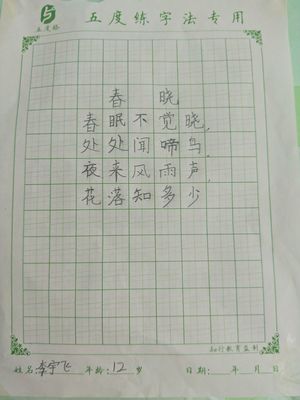 五度格
五度练字法专用
春晓
春眠不觉晓,
处处闻啼鸟.
夜来风雨声,
花落知多少
知行教育监制
姓名:李宇飞 年龄:12岁 日期: 年 月 日